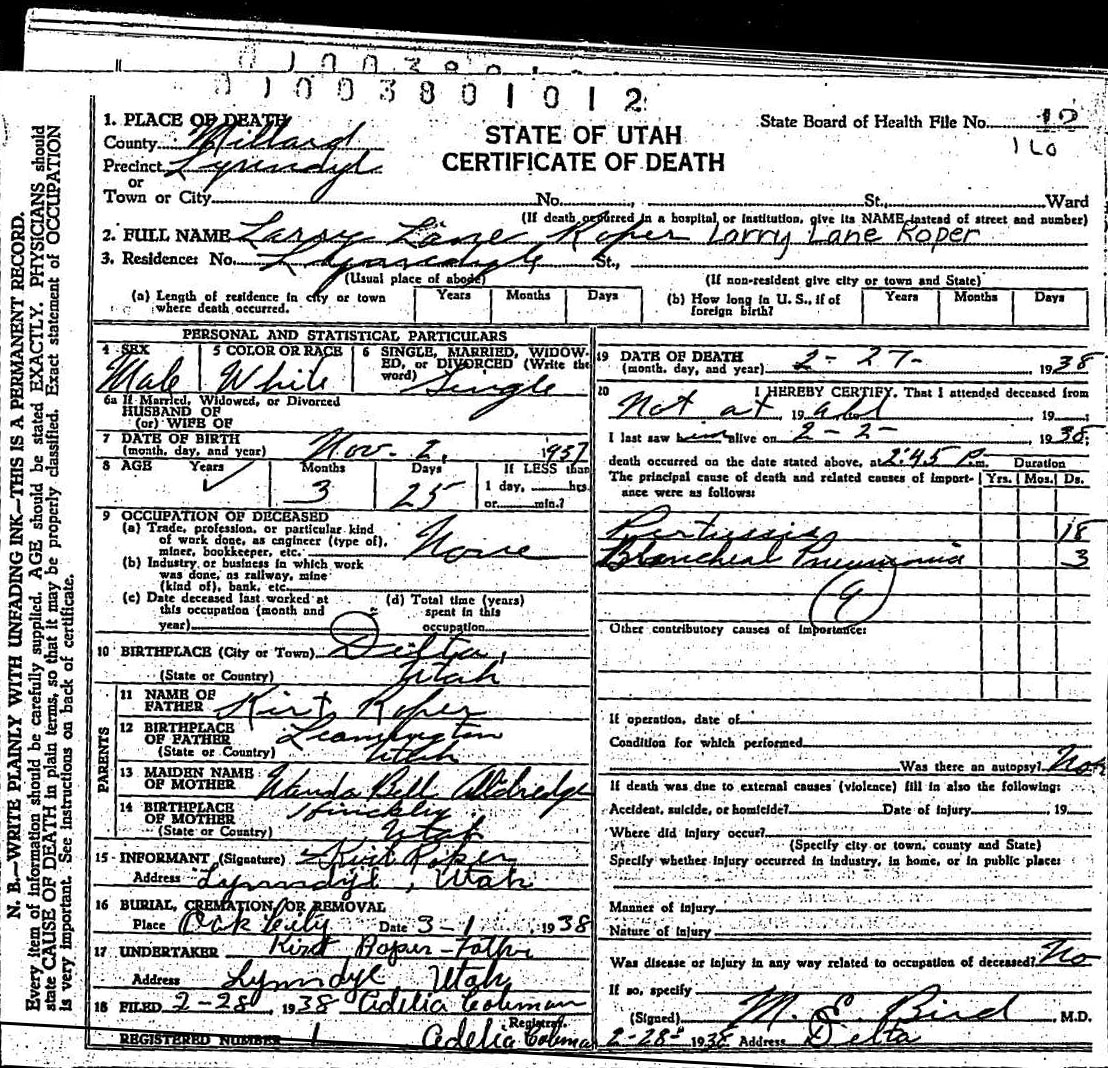 0 1 0 0 3 8 0 1 0 1 2
1. PLACE OF DEATH
County Millard
Precinct Lynndyl
or
Town or City No. , St., Ward
(If death occurred in a hospital or institution, give its NAME instead of street and number)
STATE OF UTAH
CERTIFICATE OF DEATH
State Board of Health File No. 12
160
2. FULL NAME Larry Lane Roper Larry Lane Roper
3. Residence: No. Lynndyl St.,
(Usual place of abode) (If non-resident give city or town and State)
(a) Length of residence in city or town where death occurred. Years Months Days
(b) How long in U. S., if of foreign birth? Years Months Days
PERSONAL AND STATISTICAL PARTICULARS
4 SEX Male
5 COLOR OR RACE White
6 SINGLE, MARRIED, WIDOWED, or DIVORCED (Write the word) Single
6a If Married, Widowed, or Divorced
HUSBAND OF
(or) WIFE OF
7 DATE OF BIRTH
(month, day, and year) Nov. 2, 1937
8 AGE Years ✓ Months 3 Days 25 If LESS than
1 day, hrs.
or min.?
9 OCCUPATION OF DECEASED
(a) Trade, profession, or particular kind
of work done, as engineer (type of),
miner, bookkeeper, etc. None
(b) Industry or business in which work
was done, as railway, mine
(kind of), bank, etc.
(c) Date deceased last worked at
this occupation (month and
year)
(d) Total time (years)
spent in this
occupation
10 BIRTHPLACE (City or Town) Delta,
(State or Country) Utah
PARENTS
11 NAME OF
FATHER Kirt Roper
12 BIRTHPLACE
OF FATHER Leamington
(State or Country) Utah
13 MAIDEN NAME
OF MOTHER Wanda Bell Aldredge
14 BIRTHPLACE
OF MOTHER Hinckley
(State or Country) Utah
15 INFORMANT (Signature) Kirt Roper
Address Lynndyl, Utah
16 BURIAL, CREMATION, OR REMOVAL
Place Oak City Date 3-1 1938
17 UNDERTAKER Kirt Roper - Father
Address Lynndyl Utah
18 FILED 2-28, 1938 Adelia Coleman
Registrar.
REGISTERED NUMBER 1 Adelia Coleman
19 DATE OF DEATH
(month, day, and year) 2-27- , 1938
20 I HEREBY CERTIFY, That I attended deceased from
Not at , 19 all , 19 ;
I last saw him alive on 2-2- , 1938;
death occurred on the date stated above, at 2:45 P.m.
The principal cause of death and related causes of importance were as follows:
Duration
Yrs. Mos. Ds.
Pertussis 18
Bronchial Pneumonia 3
(9)
Other contributory causes of importance:
If operation, date of
Condition for which performed
Was there an autopsy? No
If death was due to external causes (violence) fill in also the following:
Accident, suicide, or homicide? Date of injury , 19
Where did injury occur?
(Specify city or town, county and State)
Specify whether injury occurred in industry, in home, or in public place:
Manner of injury
Nature of injury
Was disease or injury in any way related to occupation of deceased? No
If so, specify
(Signed) M. E. Bird , M.D.
2-28- 1938 Address Delta
N. B.—WRITE PLAINLY WITH UNFADING INK—THIS IS A PERMANENT RECORD.
Every item of information should be carefully supplied. AGE should be stated EXACTLY. PHYSICIANS should
state CAUSE OF DEATH in plain terms, so that it may be properly classified. Exact statement of OCCUPATION
is very important. See instructions on back of certificate.